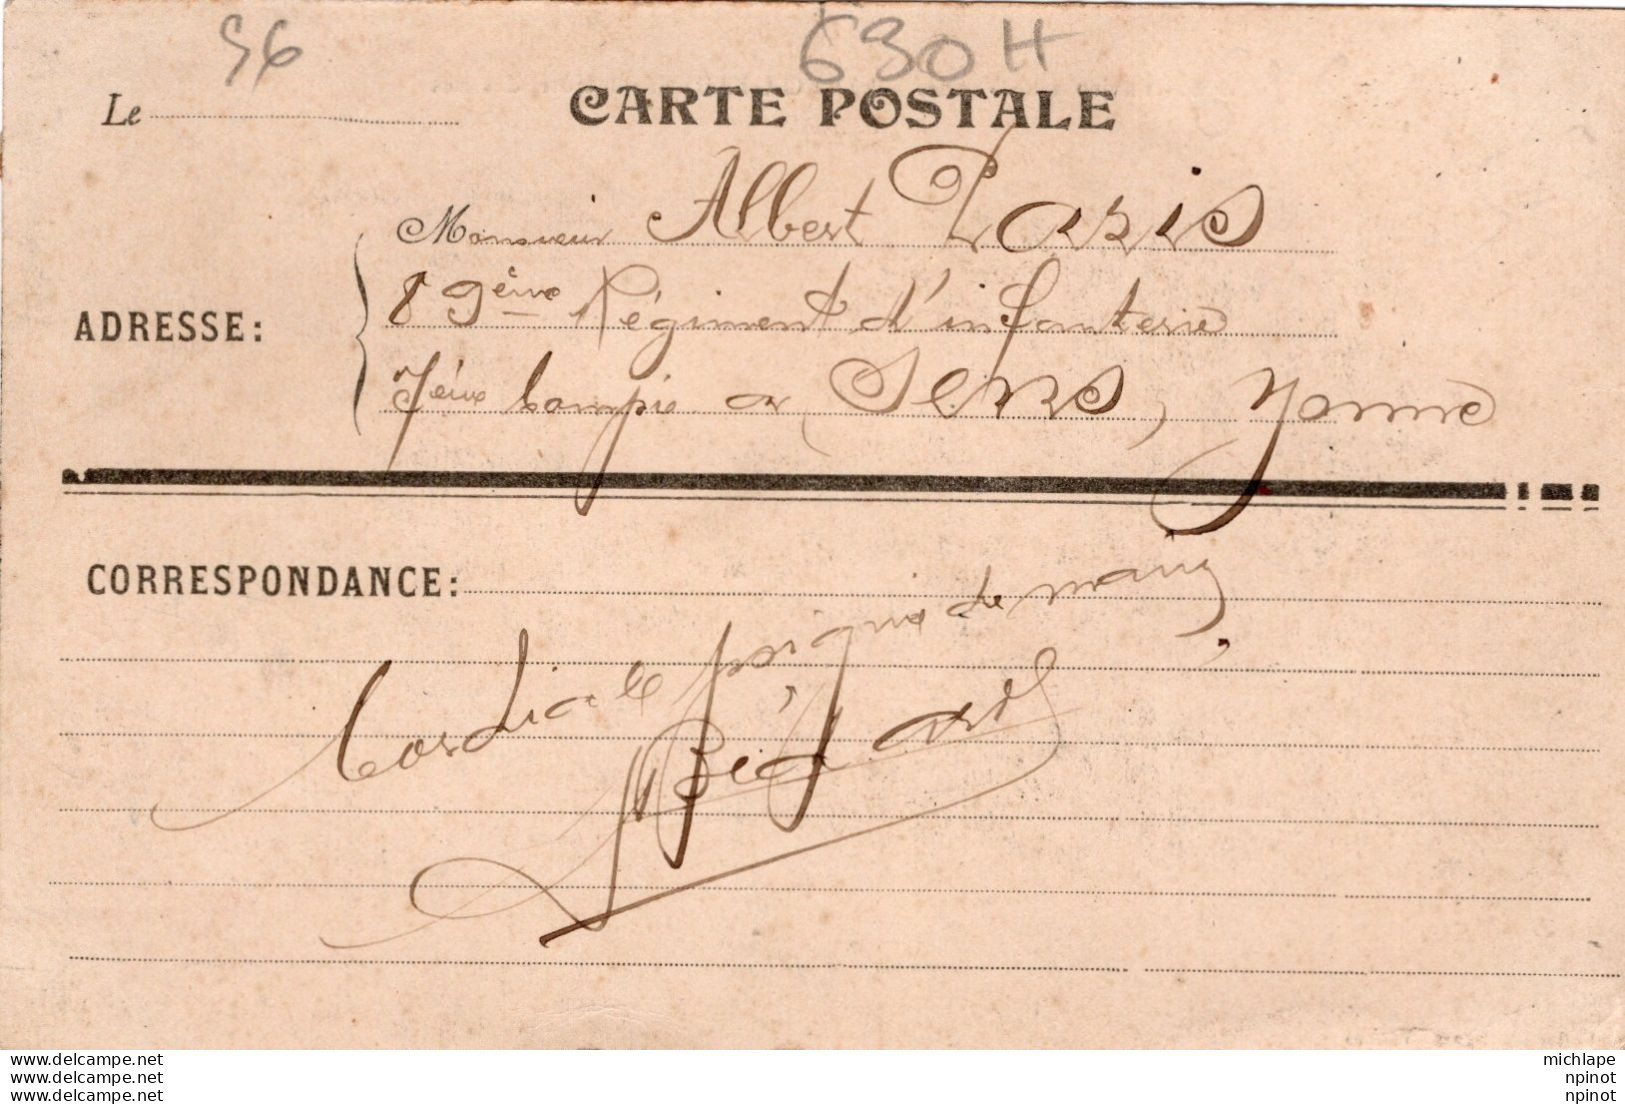 56
630H
Le
CARTE POSTALE
Monsieur Albert Paris
ADRESSE:
89ème Régiment d'infanterie
7ème Compie à Sens, Yonne
CORRESPONDANCE:
Cordiale poignée de main
www.delcampe.net
www.delcampe.net
www.delcampe.net
michlape
npinot
npinot